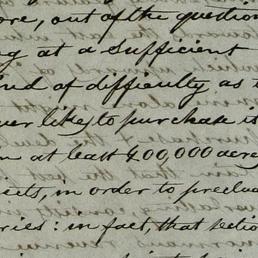 ore, out of the question
ng at a sufficient
ind of difficulty as t
ver likely to purchase is
m at least 400,000 acre
jects, in order to preclu
ries: in fact, that sectio